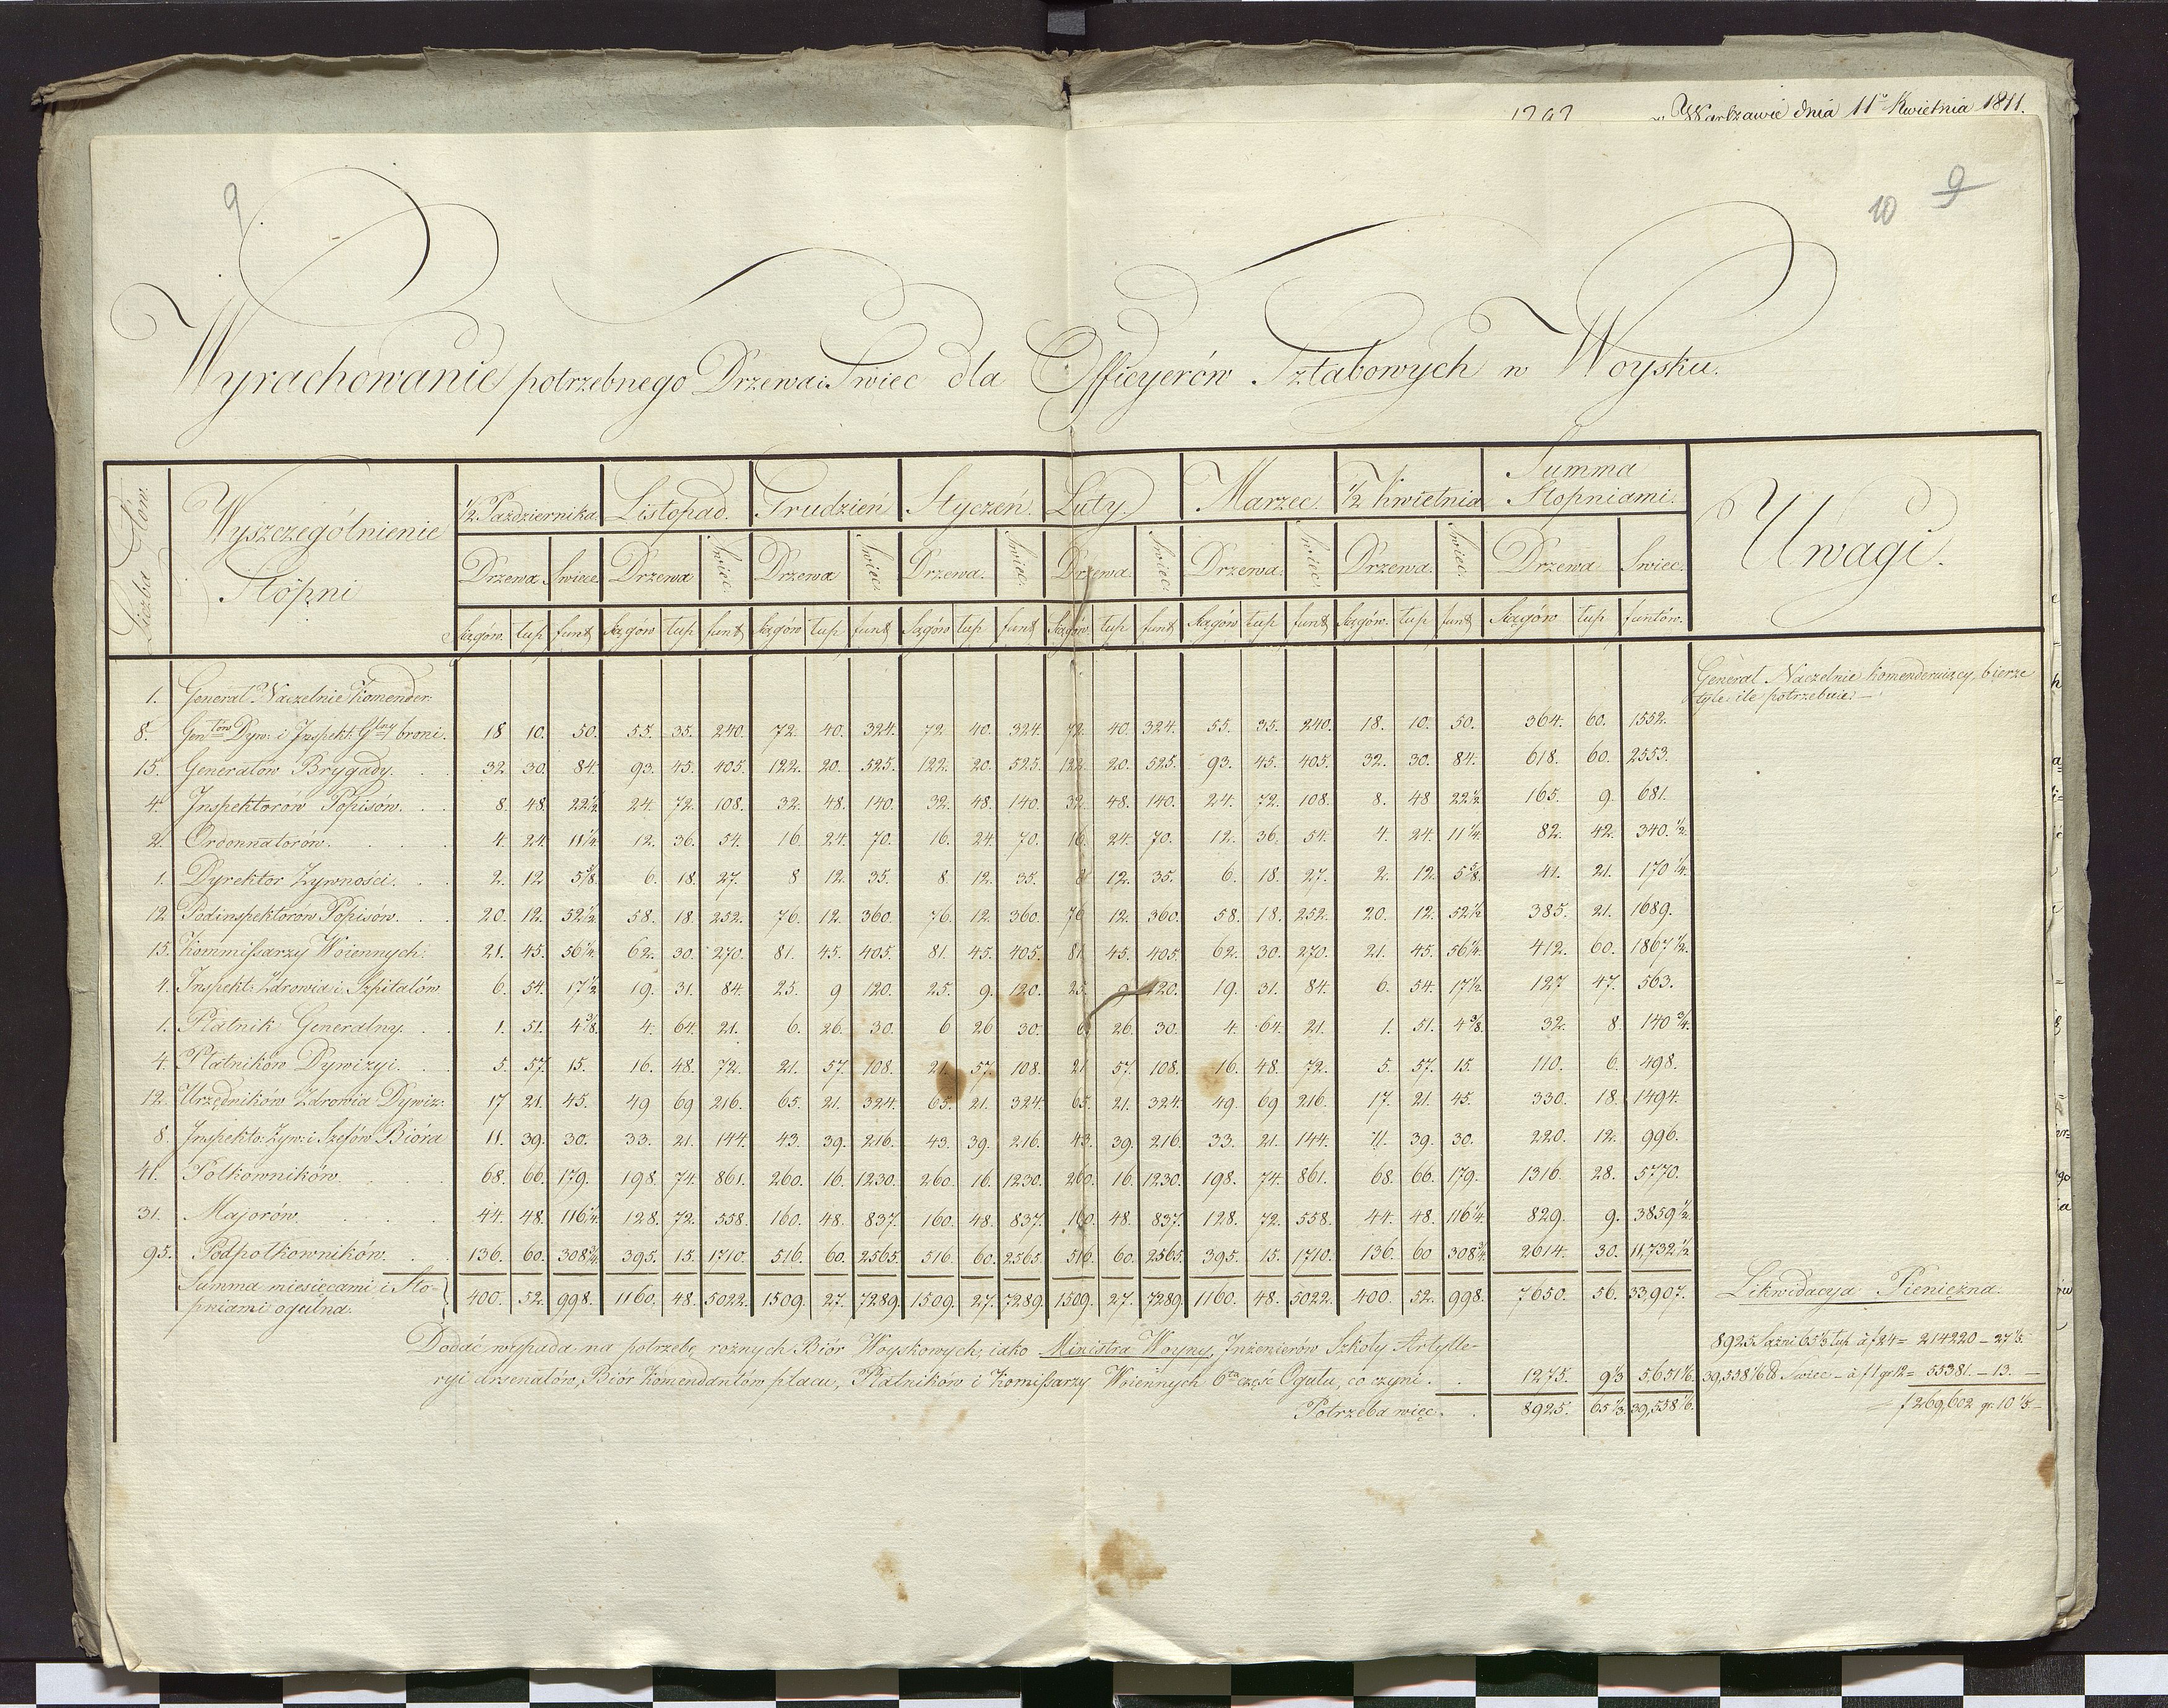 w Warszawie dnia 11º Kwietnia 1811.
9
10 9
Wyrachowanie potrzebnego Drzewa i Swiec dla Officyerów Sztabowych w Woysku.
Liczba Głów. | Wyszczególnienie Stopni | ½ Października | Listopad. | Grudzień | Styczeń. | Luty. | Marzec. | ½ Kwietnia | Summa Stopniami. | Uwagi.
Drzewa | Swiec. | Drzewa | Swiec. | Drzewa | Swiec. | Drzewa. | Swiec. | Drzewa. | Swiec. | Drzewa. | Swiec. | Drzewa. | Swiec. | Drzewa | Swiec.
Sągów. | łup | funt | Sągów | łup | funt | Sągów | łup | funt | Sągów | łup | funt | Sągów | łup | funt | Sągów | łup | funt | Sągów. | łup | funt | Sągów | łup | funtów.
1. | Generał Naczelnie Komender: | Generał Naczelnie Komenderuiący, bierze
tyle ile potrzebuie.—
8. | Gen-łów Dyw: i Inspekt: G-lny broni. | 18 | 10. | 50. | 55. | 35. | 240. | 72. | 40. | 324. | 72. | 40. | 324. | 72. | 40. | 324. | 55. | 35. | 240. | 18. | 10. | 50. | 364. | 60. | 1552.
15. | Generałów Brygady. | 32 | 30. | 84. | 93. | 45. | 405. | 122. | 20. | 525. | 122. | 20. | 525. | 122. | 20. | 525. | 93. | 45. | 405. | 32. | 30. | 84. | 618. | 60. | 2553.
4. | Inspektorów Popisów. | 8. | 48. | 22½ | 24. | 72. | 108. | 32. | 48. | 140. | 32. | 48. | 140. | 32. | 48. | 140. | 24. | 72. | 108. | 8. | 48 | 22½ | 165. | 9. | 681.
2. | Ordonnatorów. | 4. | 24. | 11¼ | 12. | 36. | 54. | 16. | 24. | 70. | 16. | 24. | 70. | 16. | 24. | 70. | 12. | 36. | 54. | 4. | 24. | 11¼. | 82. | 42. | 340.½
1. | Dyrektor Zywnosci. | 2. | 12 | 5⅝ | 6. | 18. | 27. | 8 | 12. | 35. | 8. | 12. | 35. | 8 | 12. | 35. | 6. | 18. | 27. | 2. | 12. | 5⅝. | 41. | 21. | 170¼.
12. | Podinspektorów Popisów. | 20. | 12. | 52½ | 58. | 18. | 252. | 76. | 12. | 360. | 76. | 12. | 360. | 76 | 12. | 360. | 58. | 18. | 252. | 20. | 12. | 52½ | 385. | 21. | 1689.
15. | Kommissarzy Woiennych. | 21. | 45. | 56¼. | 62. | 30. | 270. | 81. | 45. | 405. | 81. | 45. | 405. | 81. | 45. | 405. | 62. | 30. | 270. | 21. | 45. | 56¼. | 412. | 60. | 1867½.
4. | Inspekt: Zdrowia i Szpitalów | 6. | 54. | 17½ | 19. | 31. | 84. | 25. | 9 | 120. | 25. | 9. | 120. | 25. | 9 | 120. | 19. | 31. | 84. | 6. | 54. | 17½. | 127 | 47. | 563.
1. | Płatnik Generalny. | 1. | 51. | 4⅜. | 4. | 64. | 21. | 6. | 26. | 30. | 6 | 26 | 30. | 6 | 26. | 30. | 4. | 64. | 21. | 1. | 51. | 4⅜. | 32. | 8. | 140¾.
4. | Płatników Dywizyi. | 5. | 57. | 15. | 16. | 48. | 72. | 21. | 57. | 108. | 21. | 57. | 108. | 21 | 57. | 108. | 16. | 48. | 72. | 5. | 57. | 15. | 110. | 6. | 498.
12. | Urzędników Zdrowia Dywiz: | 17 | 21. | 45. | 49 | 69 | 216. | 65. | 21. | 324. | 65. | 21. | 324. | 65. | 21. | 324. | 49. | 69 | 216. | 17. | 21. | 45. | 330. | 18. | 1494.
8. | Inspekto: Zyw: i Szefów Bióra | 11. | 39. | 30. | 33. | 21. | 144. | 43. | 39. | 216. | 43. | 39. | 216. | 43. | 39. | 216. | 33. | 21. | 144. | 11. | 39. | 30. | 220. | 12. | 996.
41. | Połkowników. | 68. | 66. | 179. | 198. | 74. | 861. | 260. | 16. | 1230. | 260. | 16. | 1230. | 260. | 16. | 1230. | 198. | 74. | 861. | 68. | 66. | 179. | 1316. | 28. | 5770.
31. | Majorów. | 44. | 48. | 116¼. | 128. | 72. | 558. | 160. | 48. | 837. | 160. | 48. | 837. | 160. | 48. | 837. | 128. | 72. | 558. | 44. | 48. | 116¼. | 829. | 9. | 3859½.
95. | Podpołkowników. | 136. | 60. | 308¾. | 395. | 15. | 1710. | 516. | 60. | 2565. | 516 | 60. | 2565. | 516 | 60. | 2565. | 395. | 15. | 1710. | 136. | 60 | 308¾. | 2614. | 30. | 11,732½
Summa miesięcami i Sto-
pniami ogulna. | 400. | 52. | 998. | 1160. | 48. | 5022. | 1509. | 27. | 7289. | 1509. | 27. | 7289. | 1509. | 27. | 7289. | 1160. | 48. | 5022. | 400. | 52. | 998. | 7650. | 56. | 33,907.
Likwidacya Pieniężna.
Dodać wypada na potrzebę rożnych Biór Woyskowych, iako Ministra Woyny, Inżenierów Szkoły Artylle-
ryi Arsenałów, Biór Komendantów placu, Płatników i Komissarzy Woiennych 6-ta część Ogułu, co czyni. | 1275. | 9⅓ | 5,651⅙.
Potrzeba więc. | 8925. | 65⅓. | 39,558⅙.
8925 Sążni 65⅓ łup à f 24 = 214220 – 27⅕.
39,558⅙ ℔ Swiec – à f 1 gr 12 = 55381. – 13. –
= f 269,602 gr. 10⅕ –